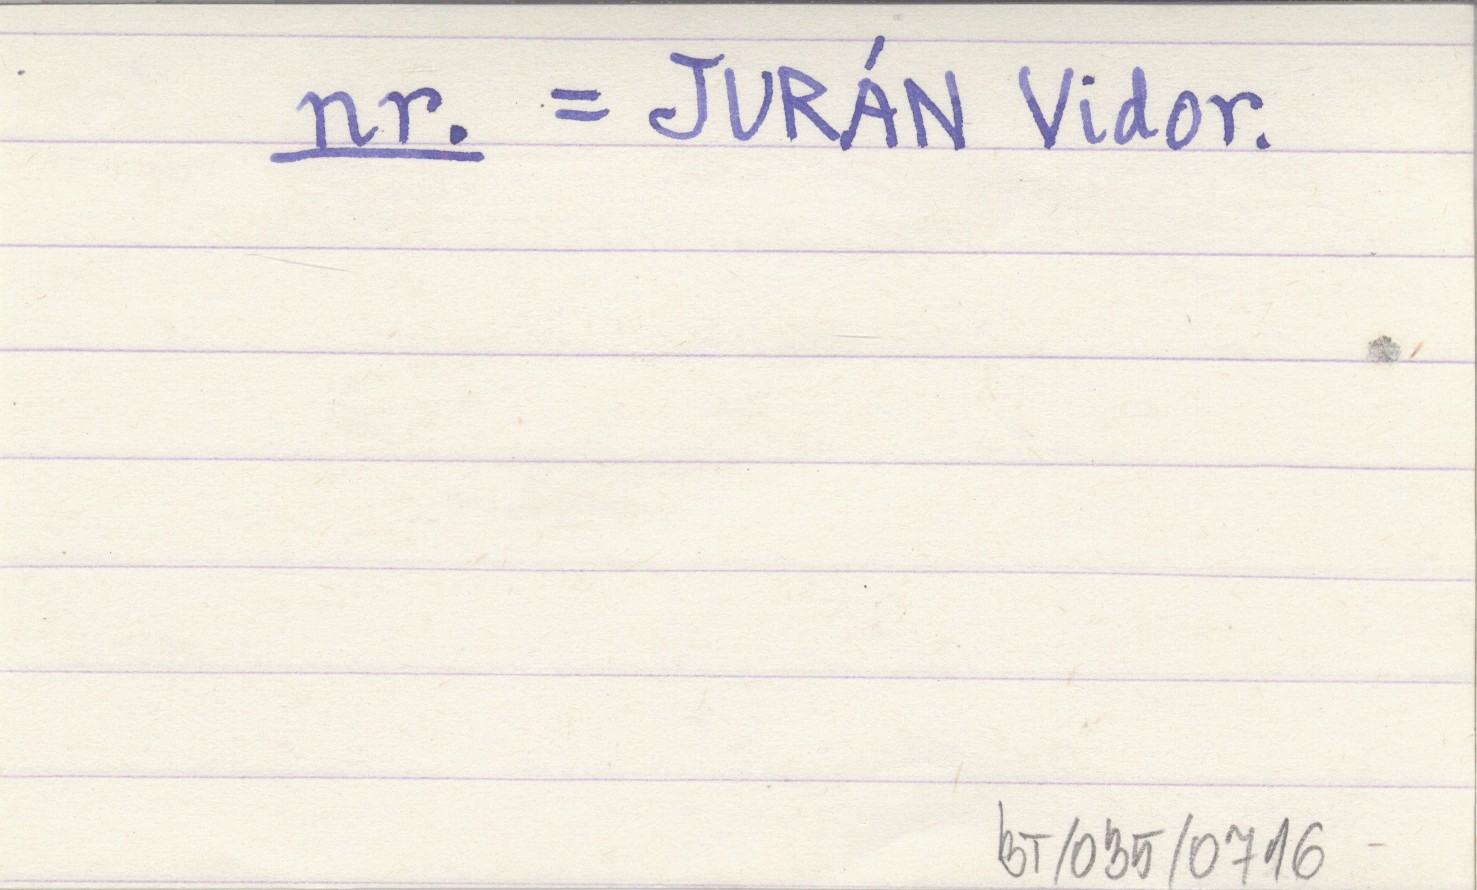 nr. = JURÁN Vidor.
BT/035/0716